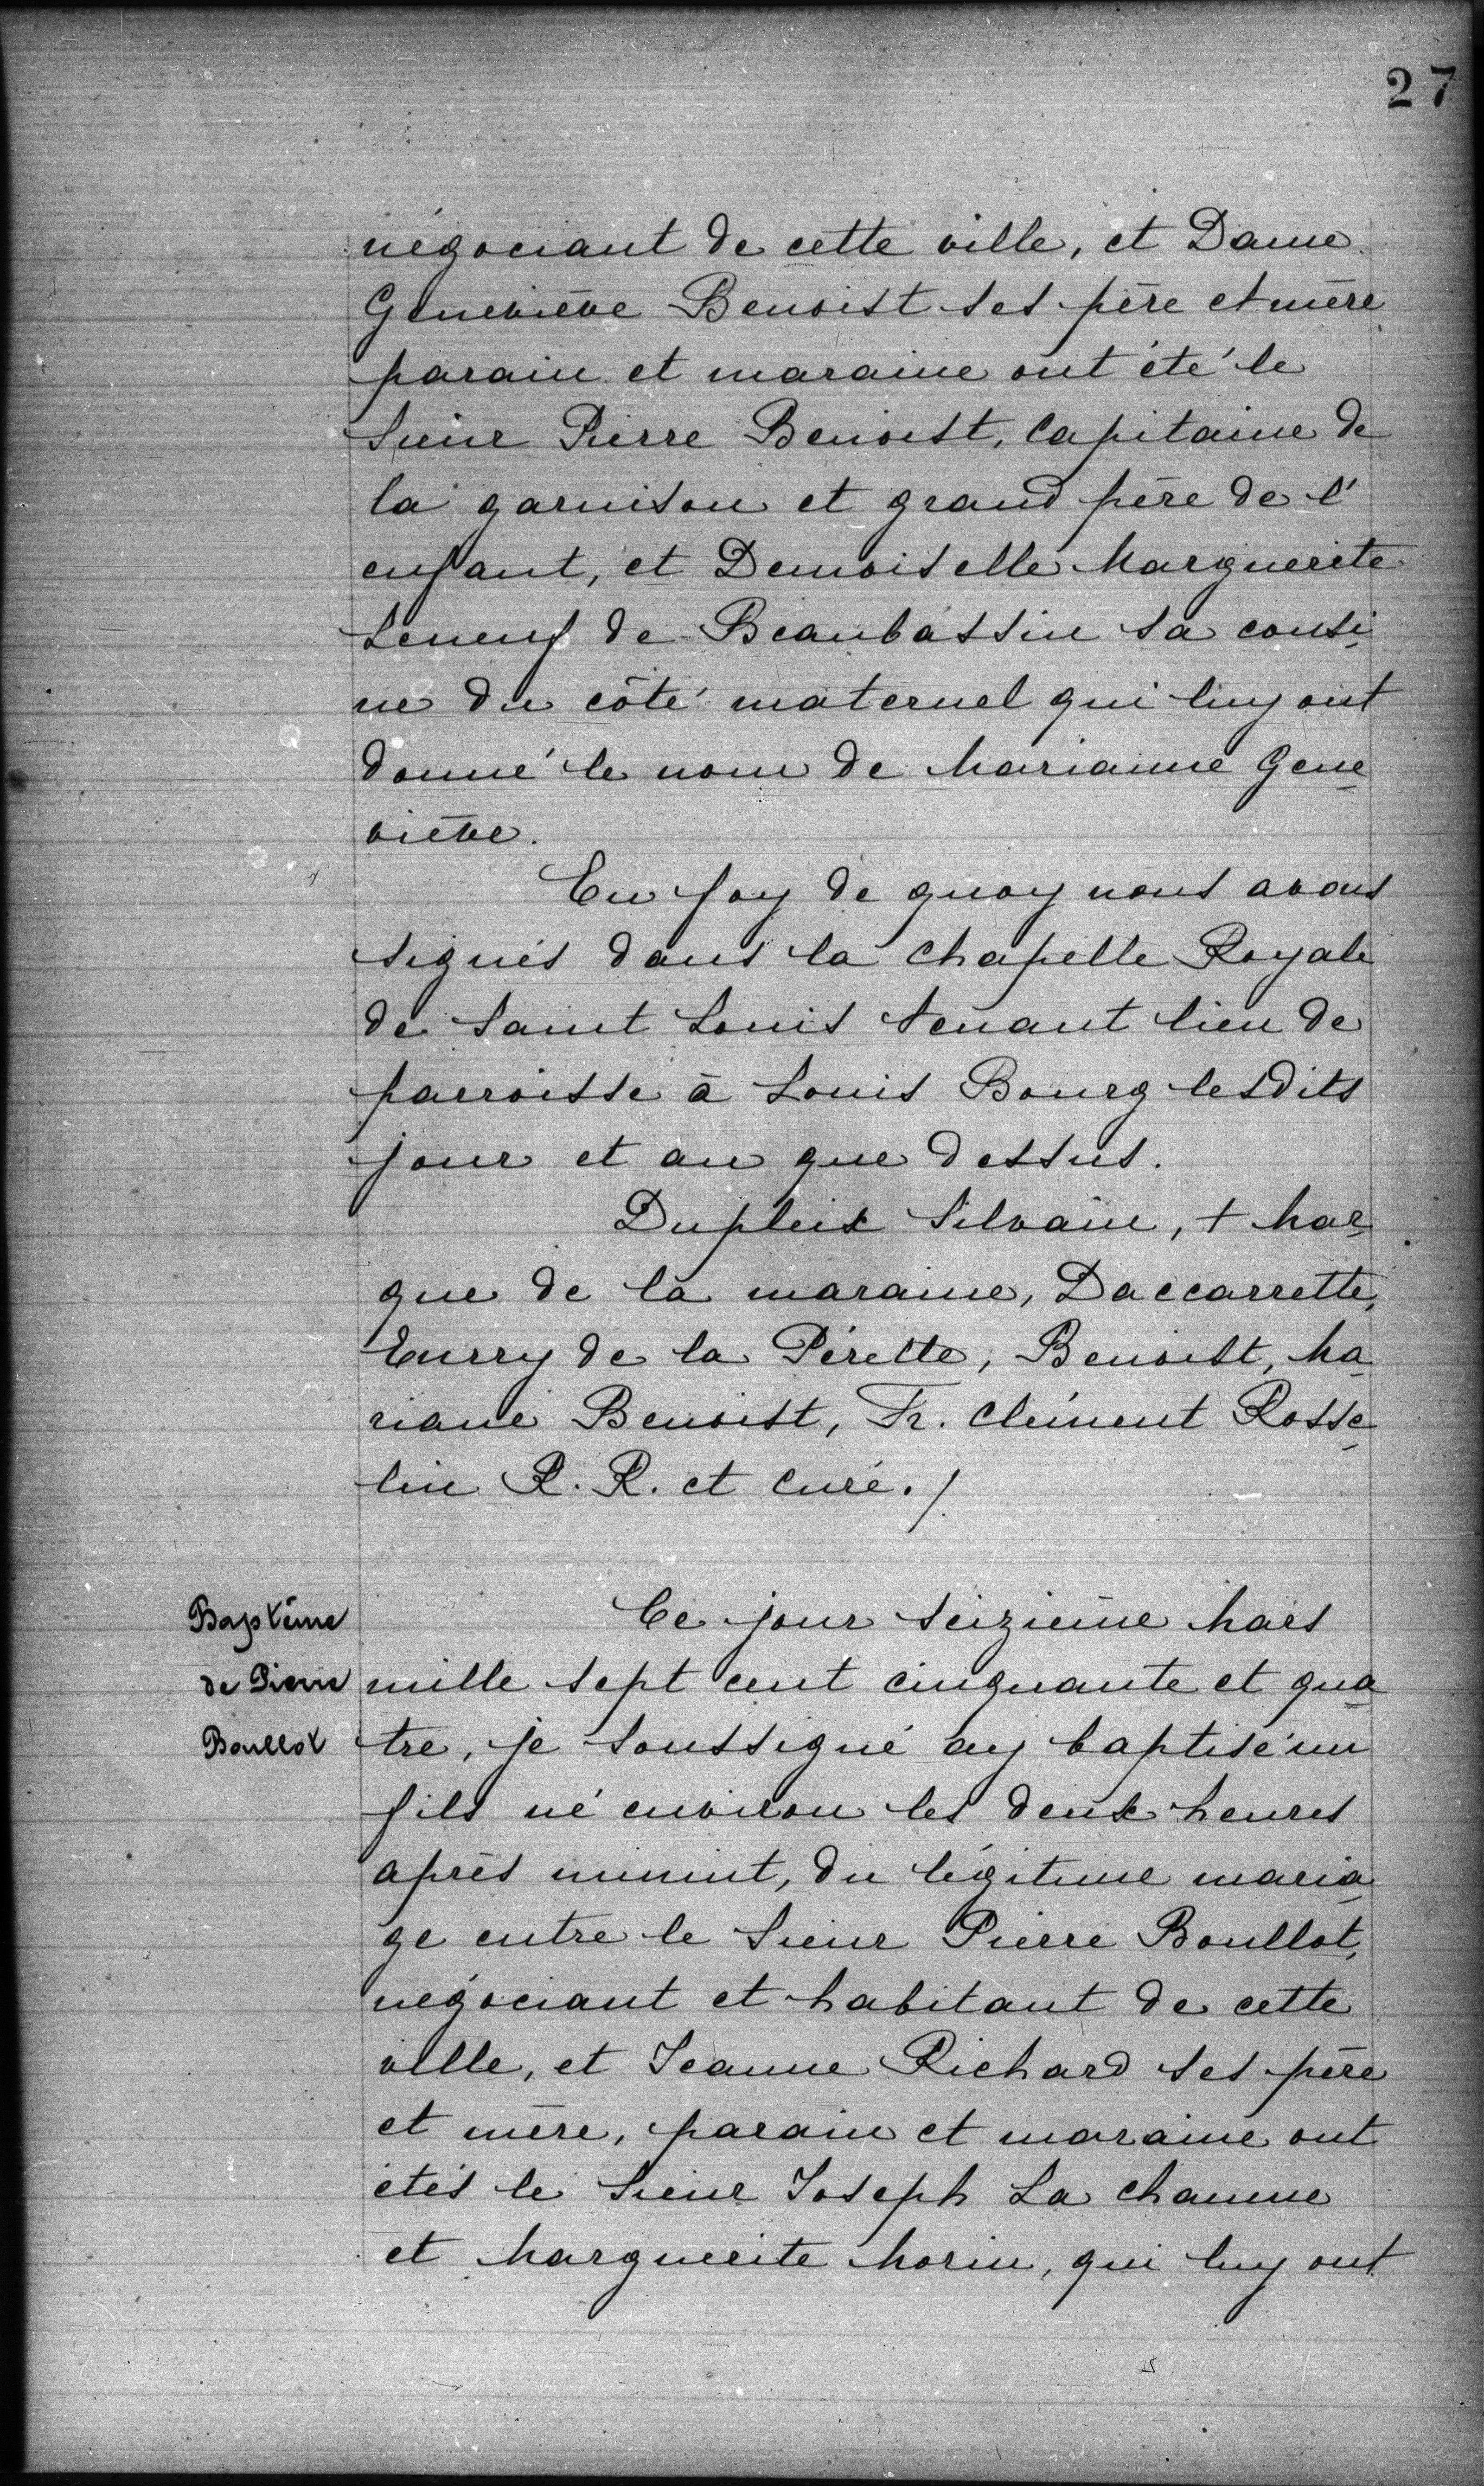 27
négociant de cette ville, et Dame
Geneviève Benoist ses père et mère
parain et maraine ont été le
Sieur Pierre Benoist, Capitaine de
la garnison et grand père de l'
enfant, et Demoiselle Marguerite
Leneuf de Beaubassin sa cousi-
ne du côté maternel qui luy ont
donné le nom de Marianne Gene-
viève.
En foy de quoy nous avons
signés dans la Chapelle Royale
de Saint Louis tenant lieu de
parroisse à Louis Bourg lesdits
jour et an que dessus.
Dupleix Silvain, + Mar-
que de la maraine, Daccarrette,
Eurry de la Pérelle, Benoist, Ma-
riane Benoist, Fr. Clément Rosse-
lin R. R. et Curé./
Baptême
de Pierre
Boullot
Ce jour seizième Mars
mille sept cent cinquante et qua-
tre, je soussigné ay baptisé un
fils né environ les deux heures
après minuit, du légitime maria-
ge entre le Sieur Pierre Boullot,
négociant et habitant de cette
ville, et Jeanne Richard ses père
et mère, parain et maraine ont
étés le Sieur Joseph La Chaume
et Marguerite Morin, qui luy ont